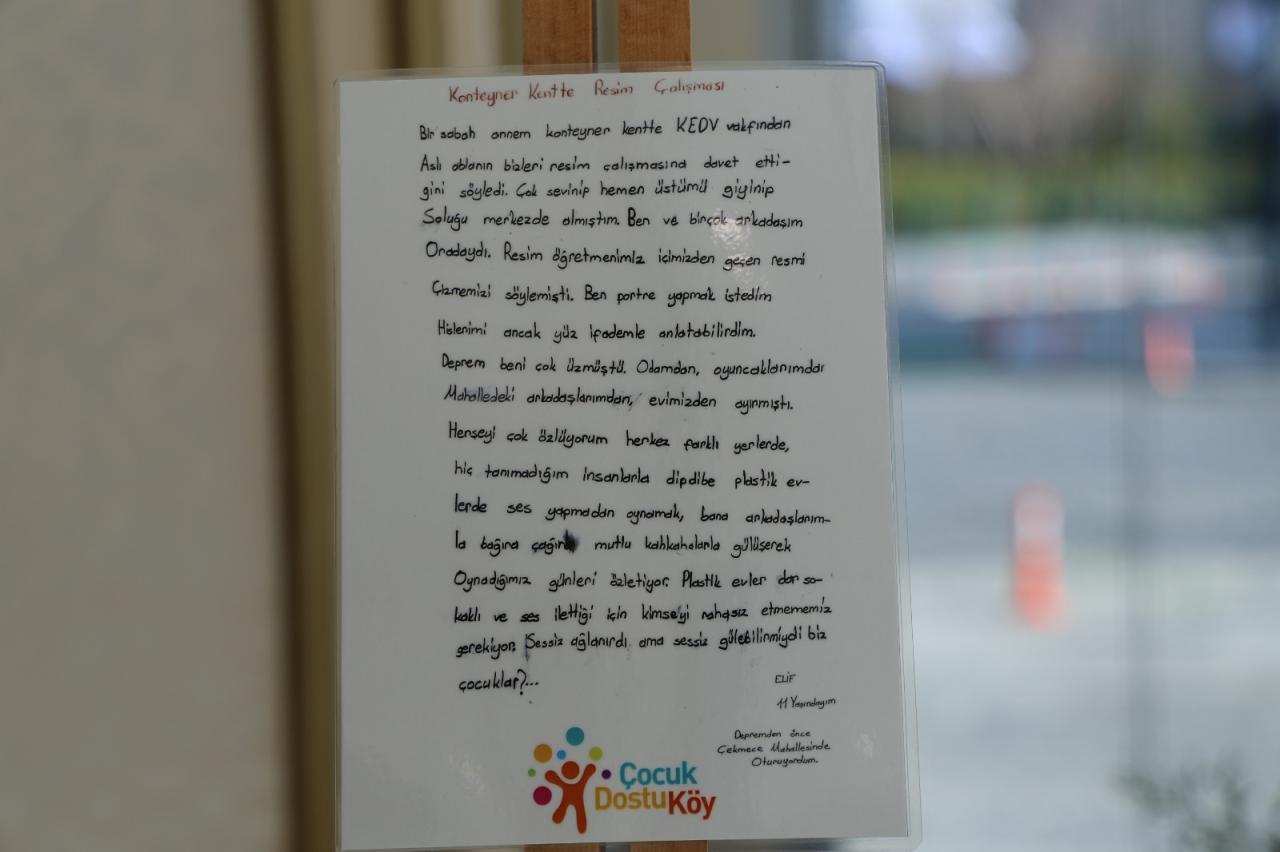 Konteyner Kentte Resim Çalışması
Bir sabah annem konteyner kentte KEDV vakfından
Aslı ablanın bizleri resim çalışmasına davet etti-
ğini söyledi. Çok sevinip hemen üstümü giyinip
Soluğu merkezde almıştım. Ben ve birçok arkadaşım
Oradaydı. Resim öğretmenimiz içimizden geçen resmi
Çizmemizi söylemişti. Ben portre yapmak istedim
Hislerimi ancak yüz ifademle anlatabilirdim.
Deprem beni çok üzmüştü. Odamdan, oyuncaklarımdan
Mahalledeki arkadaşlarımdan, evimizden ayırmıştı.
Herşeyi çok özlüyorum herkez farklı yerlerde,
hiç tanımadığım insanlarla dipdibe plastik ev-
lerde ses yapmadan oynamak, bana arkadaşlarım-
la bağıra çağıra mutlu kahkahalarla gülüşerek
Oynadığımız günleri özletiyor. Plastik evler dar so-
kaklı ve ses ilettiği için kimseyi rahasız etmememiz
gerekiyor. Sessiz ağlanırdı ama sessiz gülebilirmiydi biz
çocuklar?...
ELİF
11 Yaşındayım
Depremden önce
Çekmece Mahallesinde
Oturuyordum.
Çocuk
Dostu Köy